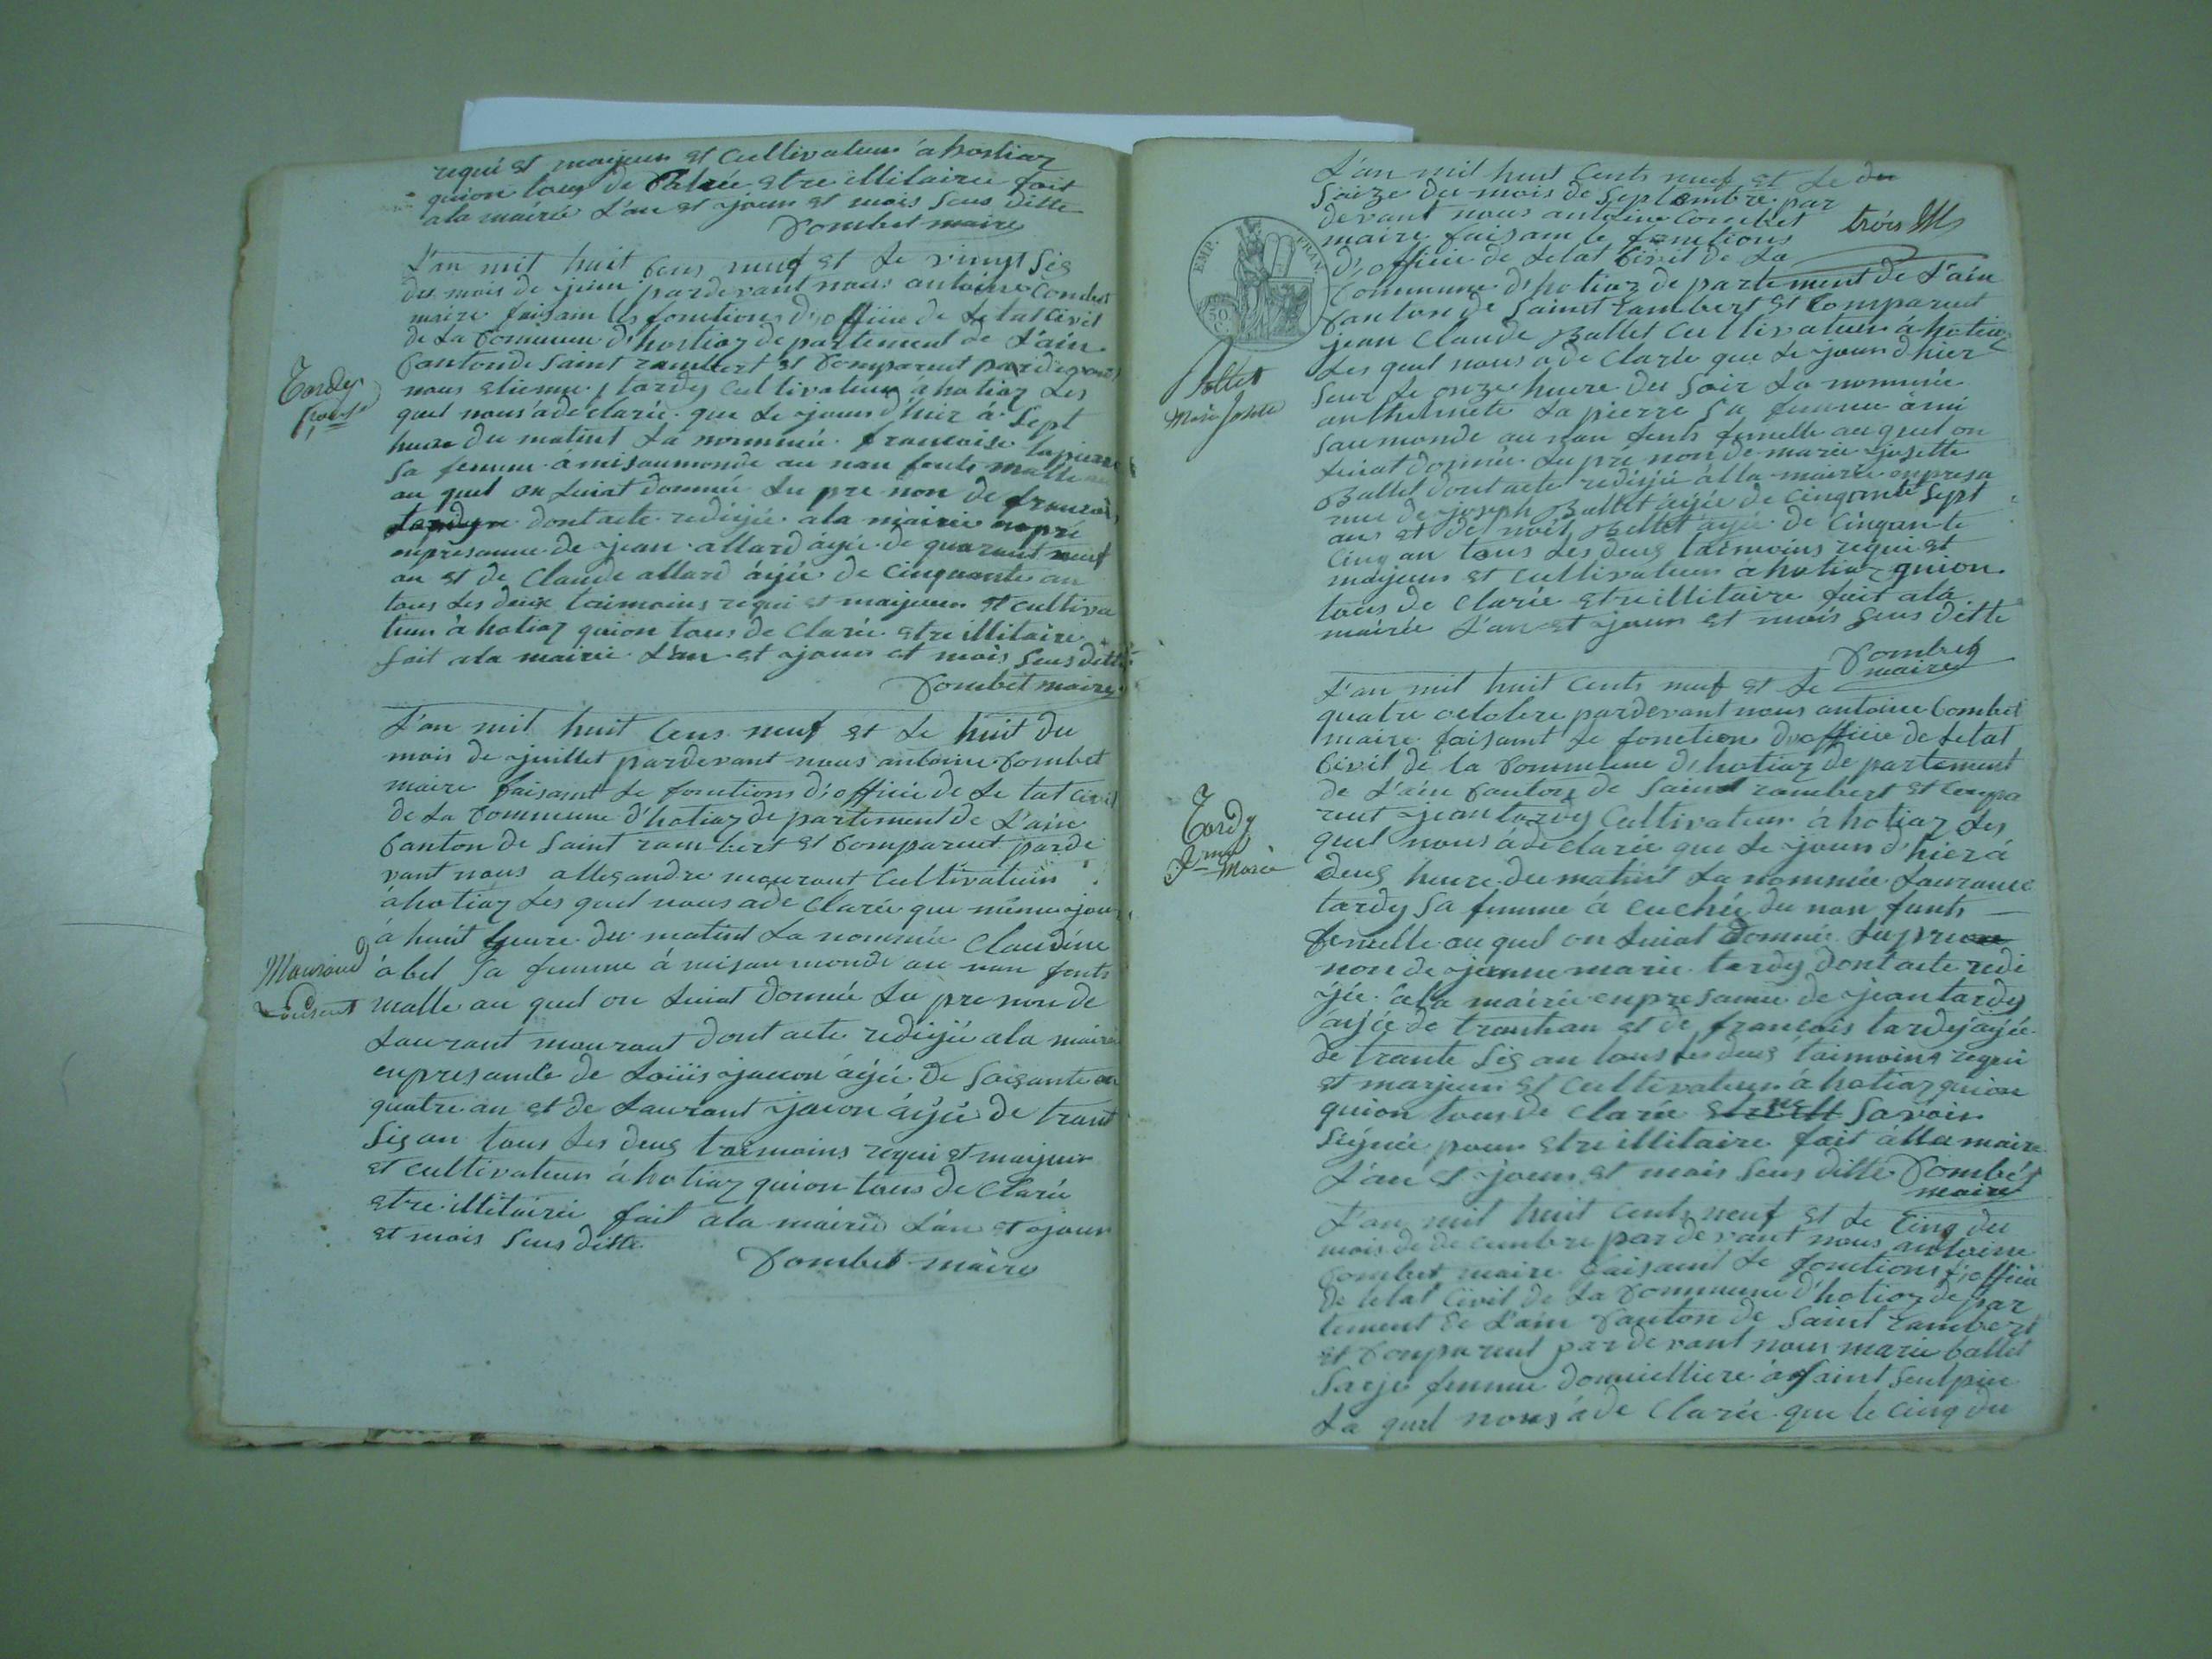 requi et maijeur et Cultivateur a hostiaz
quion tous de Clarée etre illitairée fait
ala mairie L'an et jour et mois Sus ditte
Combet maire
L'an mil huit Cens neuf et Le vingt Sis
du mois de juin pardevant nous antoine Combet
maire faisam les fonctions d'officie de Letat Civil
de La Commune d'hostiaz departement de L'ain
Canton de Saint rambert et Comparut pardevant
nous etienne tardy Cultivateur a hotiaz Les
quel nous a declarée que Le jour d'hier a Sept
heure du matint La nommée francoise lapierre
Sa femme à misaumonde au nan fents malle
au quel on Luiat donnée Lu pre non de francois
tardy dont acte redigée ala mairie
enpresanne de jean allard âgée de quarant neuf
an et de Claude allard âgée de Cinquante an
tous Les deux taimoins requi et maijeur et cultiva
teur à hotiaz quion tous de Clarée etre illitaire
fait ala mairie L'an et jour et mois Sus ditte
Combet maire
Tardy
L'an mil huit Cens neuf et Le huit du
mois de juillet pardevant nous antoine Combet
maire faisant Le fonctions d'officie de Le tat Civil
de La Commune d'hotiaz departement de L'ain
Canton de Saint rambert et Comparut parde
vant nous allesandre mourant Cultivateur
à hotiaz Les quel nous a de Clarée que même jour
à huit heure du matint La nommée Claudine
abel Sa femme à misau monde au nan fents
malle au quel on Luiat donnée Lu pre non de
Laurant mourant dont acte redigée ala mairie
enpresante de Loüis jacon âgée de Soisante
quatre an et de Laurant jacon âgée de trant
Sis an tous Les deus taimoins requi et maijeur
et cultivateur à hotiaz quion tous de Clarée
etre illitairée fait ala mairie L'an et jour
et mois Sus ditte
Combet maire
Mouraud
L'an mil huit Cents neuf et Le du
Saize du mois de Septembre par
devant nous antoine Combet
maire faisam le fonctions
D'officie de Letat Civil de La
Commune d'hotiaz departement de L'ain
Canton de Saint rambert et Comparut
jean Claude Ballet Cultivateur à hotiaz
Les quel nous a de Clarée que Le jour d'hier
Seur Le onze heure du Soir La nommée
anthelmete Lapierre Sa femme à mi
Saumonde au nan fents femelle au quel on
Luiat donnée Lu pre non de marie josette
Ballet dont acte redigée àlla mairie enpresa
nne de joseph Ballet âgée de Cinqante Sept
an et de noël Ballet âgée de Cinqante
Cinq an tous Les deus taimoins requi et
maijeur et cultivateur a hotiaz quion
tous de Clarée etre illitaire fait ala
mairie L'an et jour et mois Sus ditte
Combet
maire
trois
EMP. FRAN.
50
C.
Ballet
Marie Josette
L'an mil huit Cents neuf et Le
quatre octobre pardevant nous antoine Combet
maire faisamt Le fonction d'officie de Letat
Civil de la Commune d'hotiaz departement
de L'ain Canton de Saint rambert et Compa
rut jean tardy Cultivateur à hotiaz Les
quel nous à de Clarée que Le jour d'hier à
deus heure du matint La nommée Laurance
tardy Sa femme à Cuchée du nan fants
femelle au quel on Luiat donnée Lu pre
non de jeanne marie tardy dont acte redi
gée ala mairie enpresanne de jean tardy
âgée de trantean et de francois tardy âgée
de trante Sis an tous Les deus taimoins requi
et maijeur et Cultivateur à hotiaz quion
quion tous de Clarée Savoir
Signée pour etre illitaire fait àlla maire
L'an et jour et mois Sus ditte Combet
maire
Tardy
Marie
L'an mil huit Cents neuf et Le Cinq du
mois de decembre par devant nous antoine
Combet maire faisamt Le fonctions d'officie
de Letat Civil de La Commune d'hotiaz depar
tement de L'ain Canton de Saint rambert
et Comparut par devant nous marie ballet
Sarje femme domicilliere à Saint Seulpice
La quel nous à de Clarée que le Cinq du